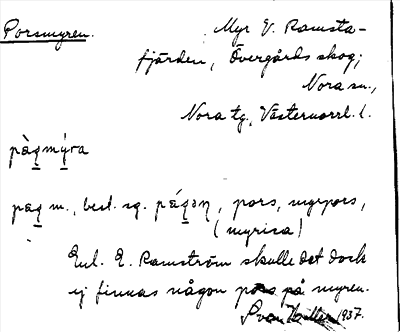 Porsmyren.
Myr V. Ramsta-
fjärden, Övergårds skog;
Nora sn.,
Nora tg, Västernorrl. l.
pàq̱mý̱ra
paq̱ m., best. sg. páq̱ən, pors, myrpors,
(myrica)
Enl. E. Ramström skulle det dock
ej finnas någon pors på myren.
1937.